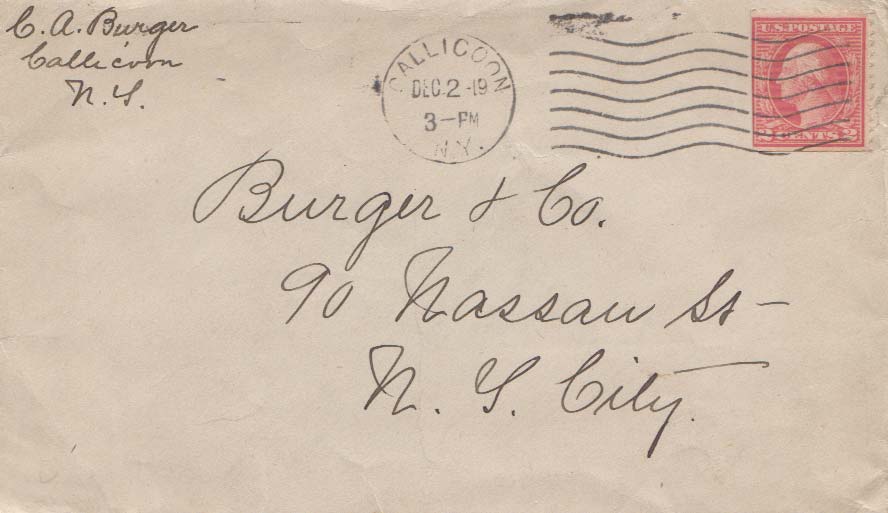 C. A. Burger
Callicoon
N. Y.
CALLICOON
DEC 2 -19
3 - PM
N.Y.
U.S. POSTAGE
2 CENTS 2
Burger & Co.
90 Nassau St -
N. Y. City.